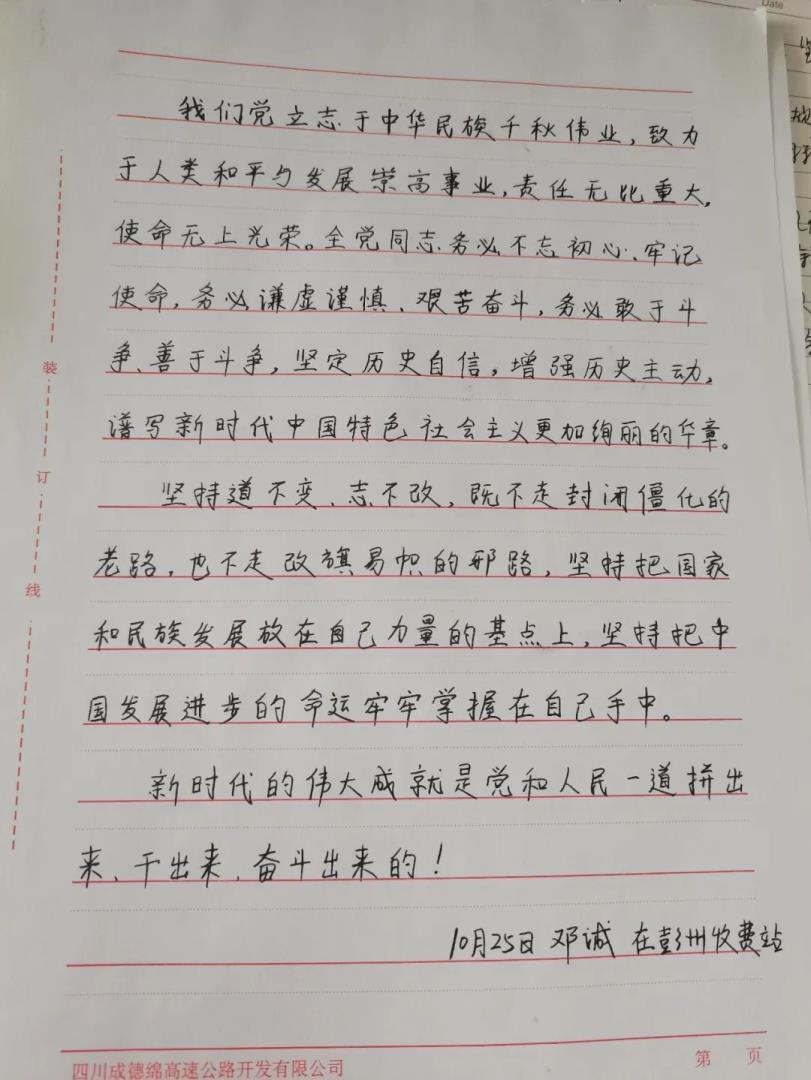 Date
我们党立志于中华民族千秋伟业，致力
于人类和平与发展崇高事业，责任无比重大，
使命无上光荣。全党同志务必不忘初心、牢记
使命，务必谦虚谨慎、艰苦奋斗，务必敢于斗
争、善于斗争，坚定历史自信，增强历史主动，
谱写新时代中国特色社会主义更加绚丽的华章。
坚持道不变、志不改，既不走封闭僵化的
老路，也不走改旗易帜的邪路，坚持把国家
和民族发展放在自己力量的基点上，坚持把中
国发展进步的命运牢牢掌握在自己手中。
新时代的伟大成就是党和人民一道拼出
来、干出来、奋斗出来的！
10月25日 邓诚 在彭州收费站
装
订
线
四川成德绵高速公路开发有限公司
第 页